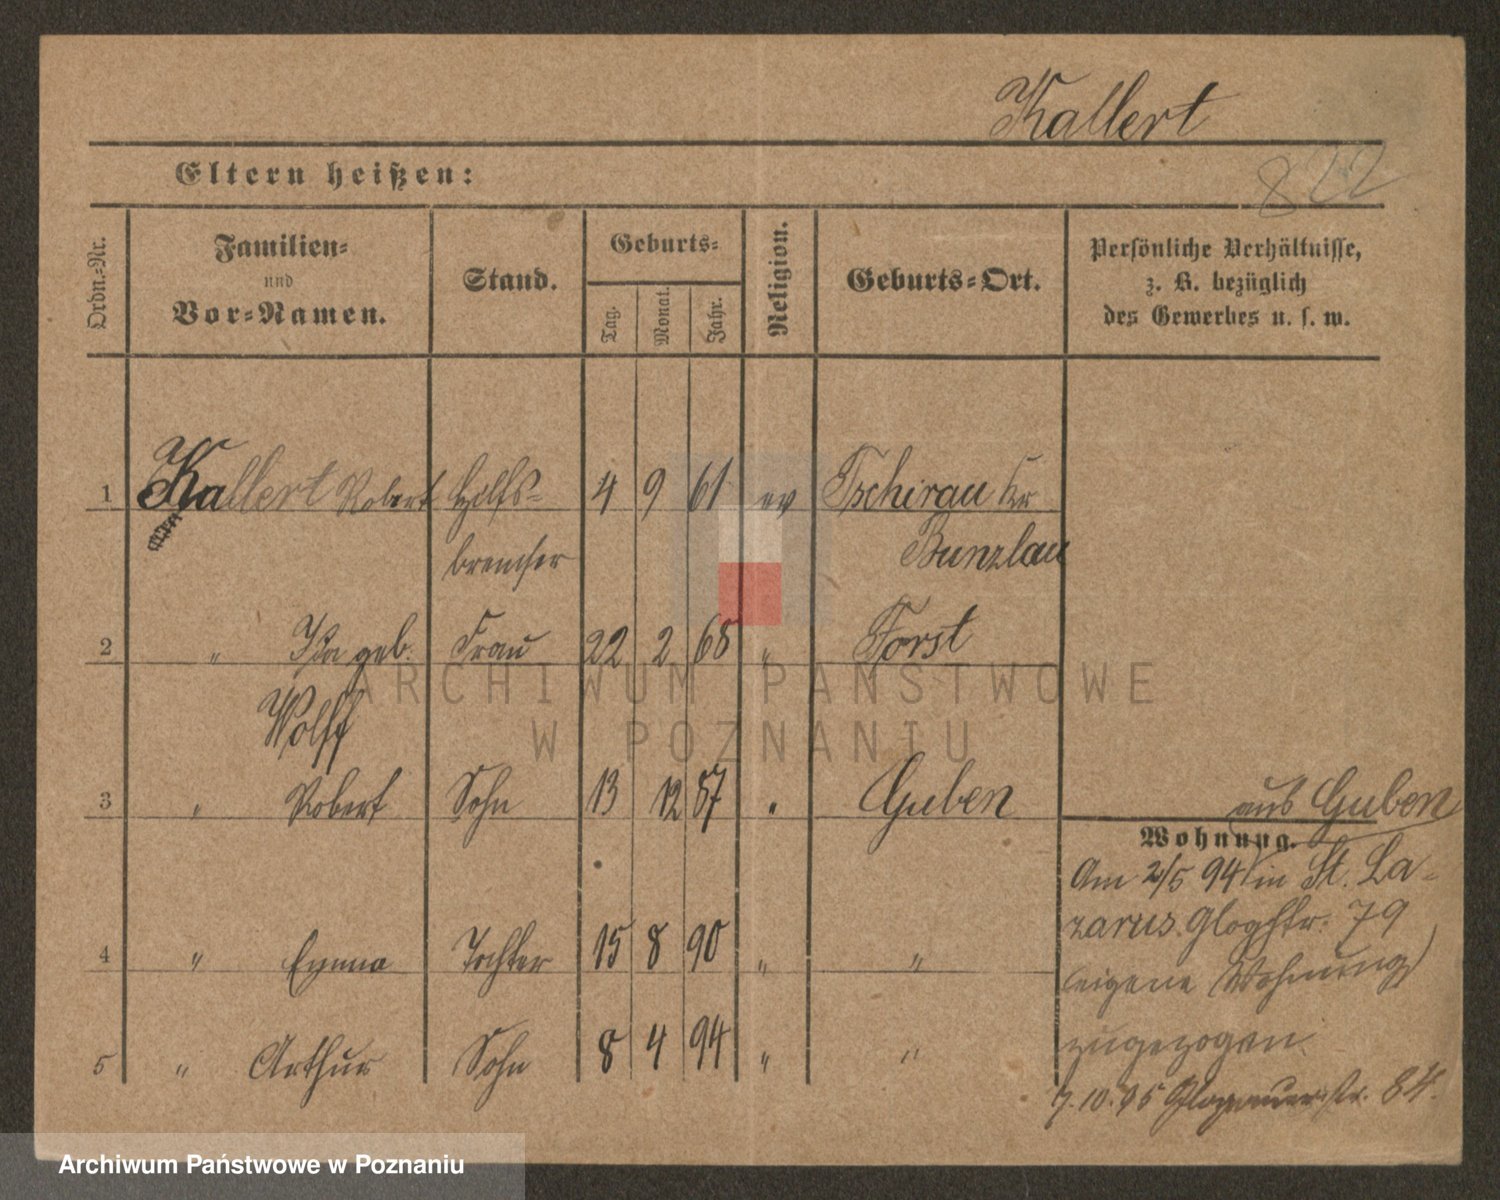 Kallert
822
Eltern heißen:
Ordn.-Nr.
Familien-
und
Vor-Namen.
Stand.
Geburts-
Tag.
Monat.
Jahr.
Religion.
Geburts-Ort.
Persönliche Verhältnisse,
z. B. bezüglich
des Gewerbes u. s. w.
1 Kallert Robert Hilfs- 4 9 61 ev Tschirau Kr
bremser Bunzlau
2 " Ida geb. Frau 22 2 68 " Forst
Wolff
3 " Robert Sohn 13 12 87 " Guben
aus Guben
Wohnung.
Am 2/5 94 in St. La-
zarus Gloghstr. 79
4 " Emma Tochter 15 8 90 " "
(eigene Wohnung)
zugezogen
5 " Arthur Sohn 8 4 94 " "
7.10.95 Glogauerstr. 84.
ARCHIWUM PAŃSTWOWE
W POZNANIU
Archiwum Państwowe w Poznaniu